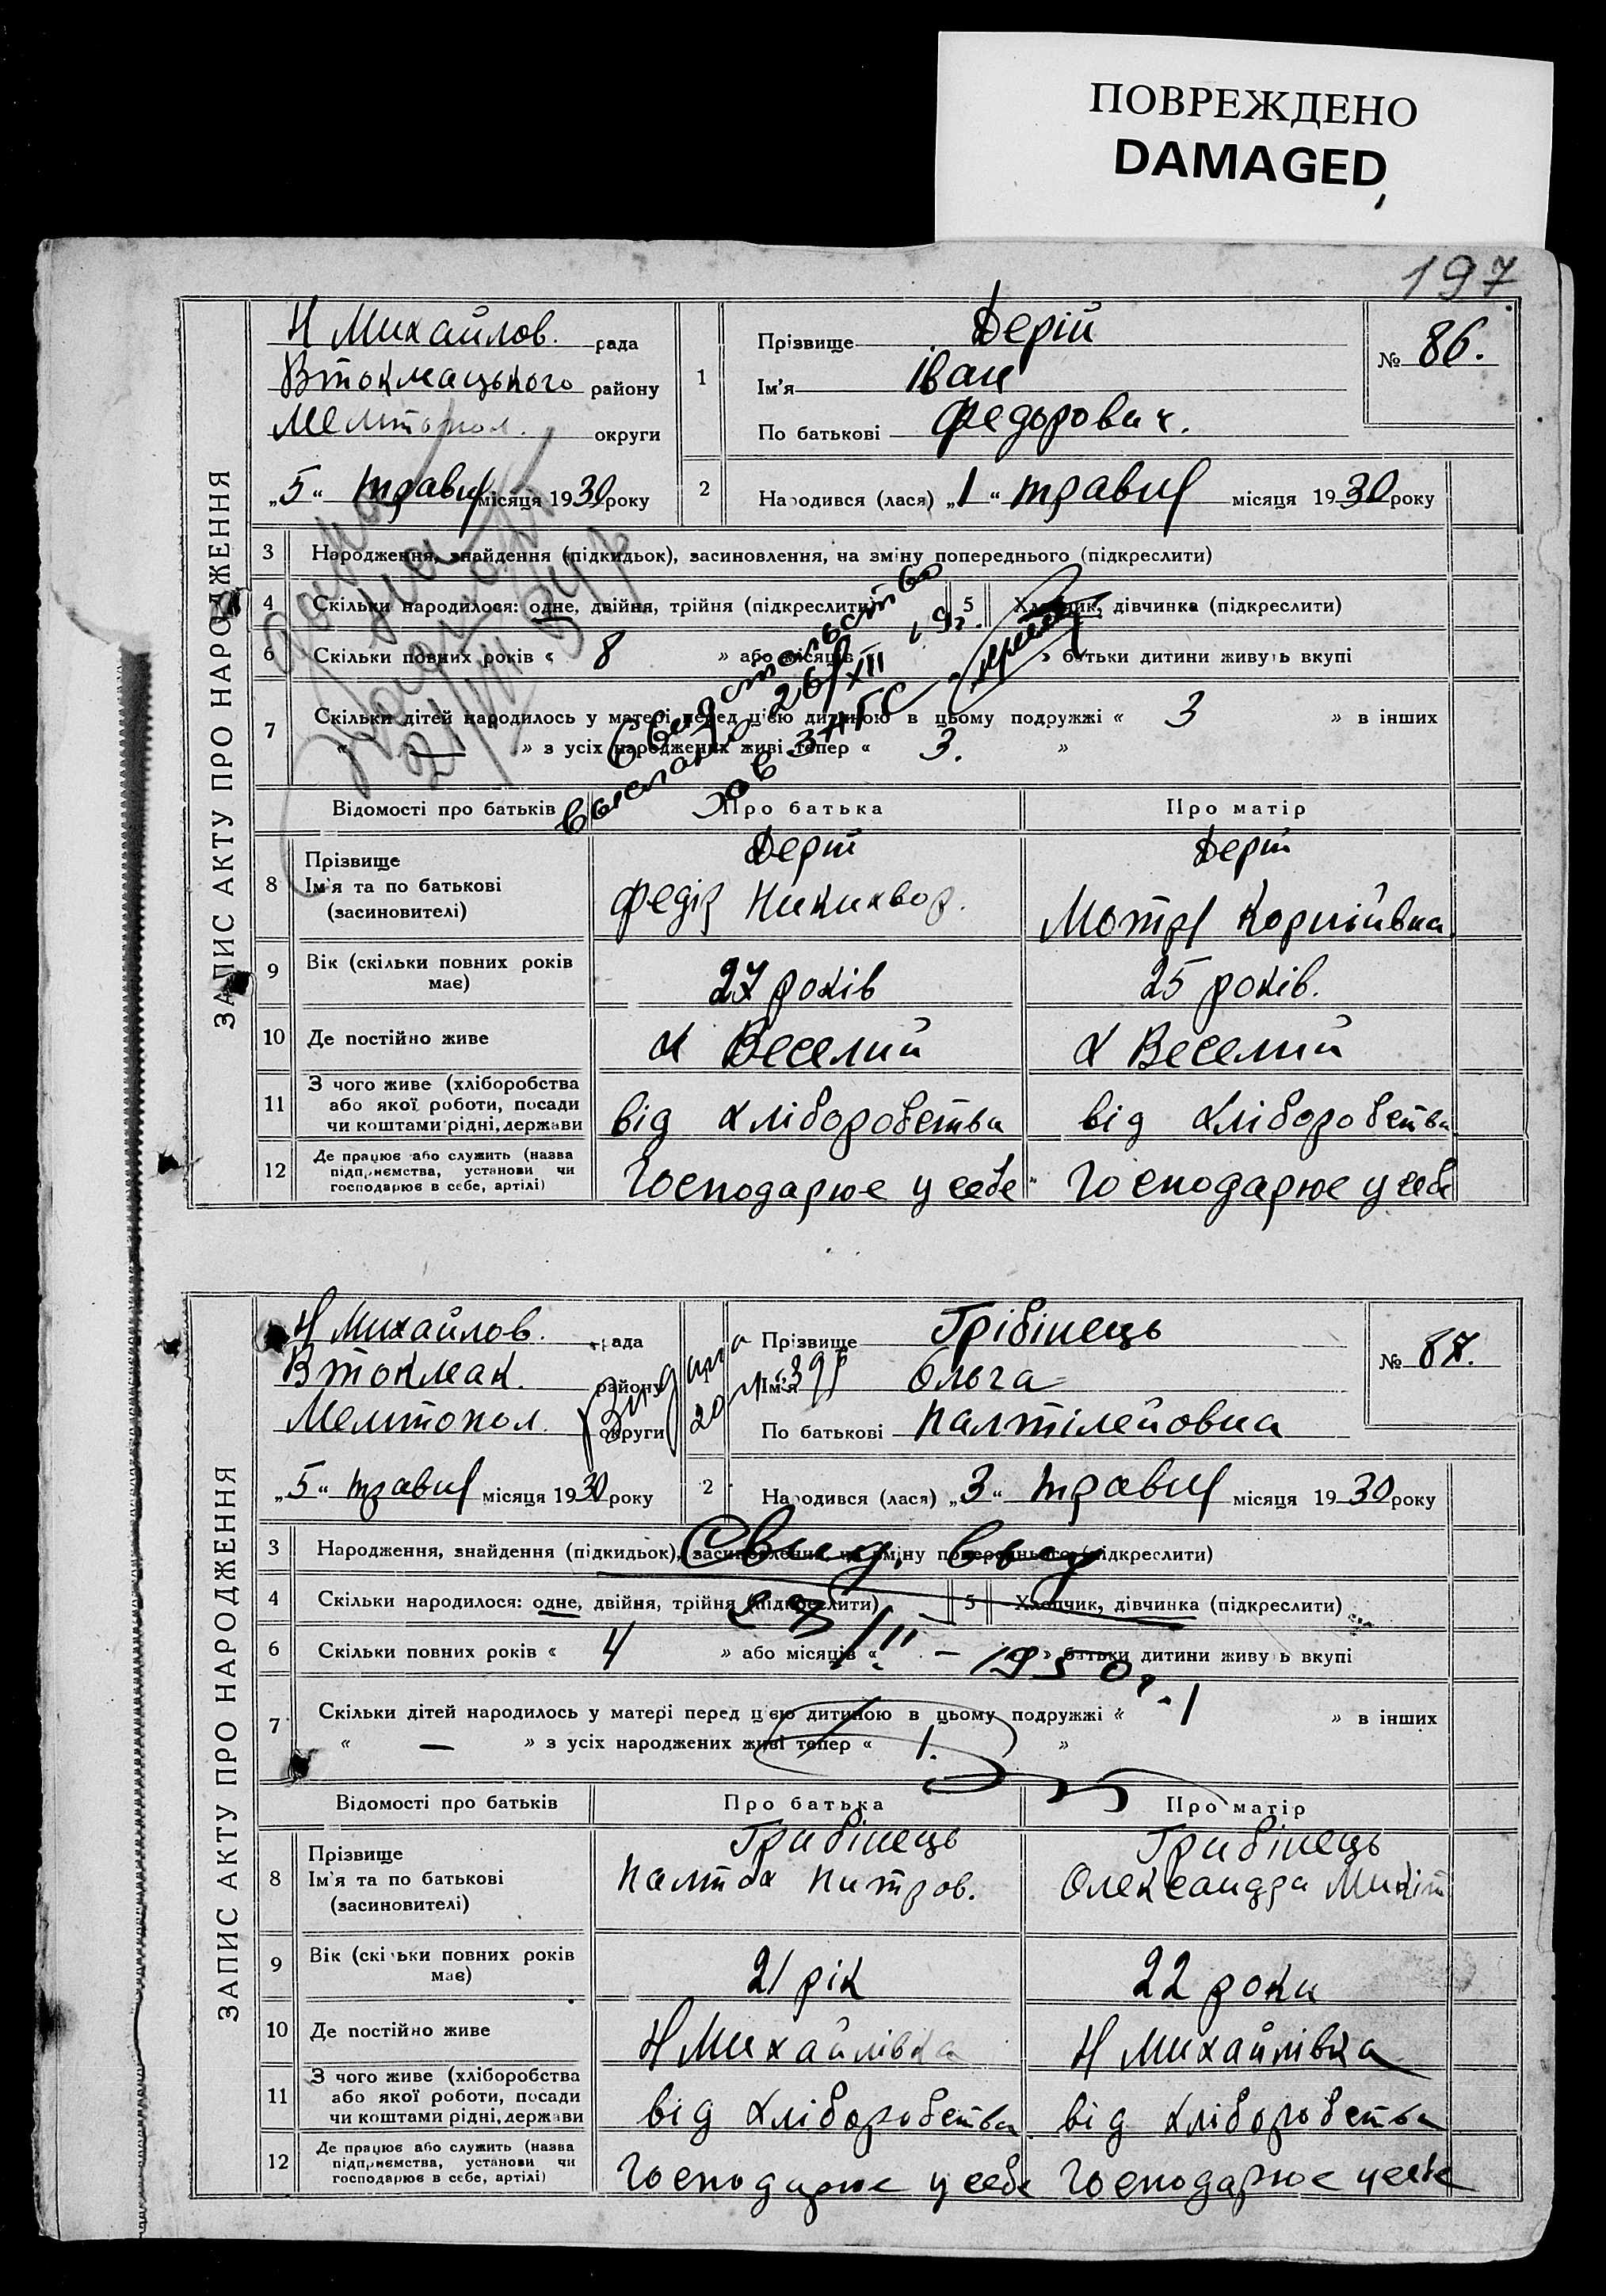 ПОВРЕЖДЕНО
DAMAGED
197
ЗАПИС АКТУ ПРО НАРОДЖЕННЯ
Н Михайлов. рада
Втокмацького району
Мелітопол. округи
„5“ травня місяця 1930 року
1
Прізвище Дерій
Ім'я Іван
По батькові Федорович.
№ 86.
2
Народився (лася) „1“ травня місяця 1930 року
3 Народження, знайдення (підкидьок), засиновлення, на зміну попереднього (підкреслити)
4 Скільки народилося: одне, двійня, трійня (підкреслити)
5 Хлопчик, дівчинка (підкреслити)
6 Скільки повних років « 8 » або місяців » батьки дитини живуть вкупі
7 Скільки дітей народилось у матері перед цією дитиною в цьому подружжі « 3 » в інших
« — » з усіх народжених живі тепер « 3. »
Свидетельство
выслано 26/XII
ЗАГС
Відомості про батьків
Про батька
Про матір
8 Прізвище
Ім'я та по батькові
(засиновителі)
Дерій
Федір Никихвор.
Дерій
Мотря Корніівна
9 Вік (скільки повних років має)
27 років
25 років.
10 Де постійно живе
х Веселий
х Веселий
11 З чого живе (хліборобства
або якої роботи, посади
чи коштами рідні, держави
від хліборобства
від хліборобства
12 Де працює або служить (назва
підприємства, установи чи
господарює в себе, артілі)
Господарює у себе
Господарює у себе
ЗАПИС АКТУ ПРО НАРОДЖЕННЯ
Н Михайлов. рада
Втокмак. району
Мелітопол. округи
„5“ травня місяця 1930 року
Прізвище Грібінець
Ім'я Ольга
По батькові Палтілейовна
№ 87.
2
Народився (лася) „3“ травня місяця 1930 року
3 Народження, знайдення (підкидьок), засиновлення, на зміну попереднього (підкреслити)
Свид.
4 Скільки народилося: одне, двійня, трійня (підкреслити)
5 Хлопчик, дівчинка (підкреслити)
6 Скільки повних років « 4 » або місяців « » батьки дитини живуть вкупі
1950 г.
7 Скільки дітей народилось у матері перед цією дитиною в цьому подружжі « 1 » в інших
« — » з усіх народжених живі тепер « 1. »
Відомості про батьків
Про батька
Про матір
8 Прізвище
Ім'я та по батькові
(засиновителі)
Грибінець
Палтох Питров.
Грибінець
Олександра Микіт
9 Вік (скільки повних років має)
21 рік
22 роки
10 Де постійно живе
Н Михайлівка
Н Михайлівка
11 З чого живе (хліборобства
або якої роботи, посади
чи коштами рідні, держави
від хліборобства
від хліборобства
12 Де працює або служить (назва
підприємства, установи чи
господарює в себе, артілі)
Господарює у себе
Господарює у себе